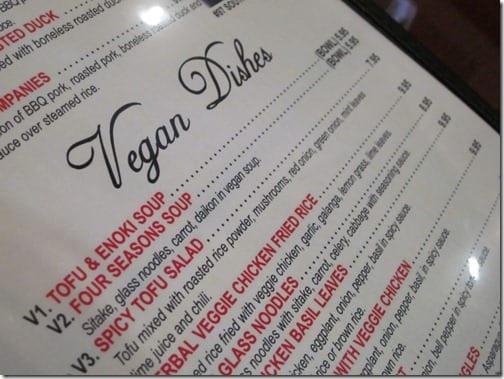 STED DUCK
ed with boneless roasted duck
MPANIES
on of BBQ pork, roasted pork, boneless roasted duck and
uce over steamed rice.
Vegan Dishes
V1. TOFU & ENOKI SOUP (BOWL) 5.95
V2. FOUR SEASONS SOUP (BOWL) 5.95
Sitake, glass noodles, carrot, daikon in vegan soup.
V3. SPICY TOFU SALAD 7.95
Tofu mixed with roasted rice powder, mushrooms, red onion, green onion, mint leaves
lime juice and chili.
ERBAL VEGGIE CHICKEN FRIED RICE 9.95
rice fried with veggie chicken, garlic, galanga, lemon grass, lime leaves
GLASS NOODLES 8.95
noodles with sitake, carrot, celery, cabbage with seasoning sauce.
CKEN BASIL LEAVES 9.95
chicken, eggplant, onion, pepper, basil in spicy sauce.
rice or brown rice.
WITH VEGGIE CHICKEN 9.95
eggplant, onion, pepper, basil in spicy sauce.
wn rice.
onion, bell pepper in spicy
GLES